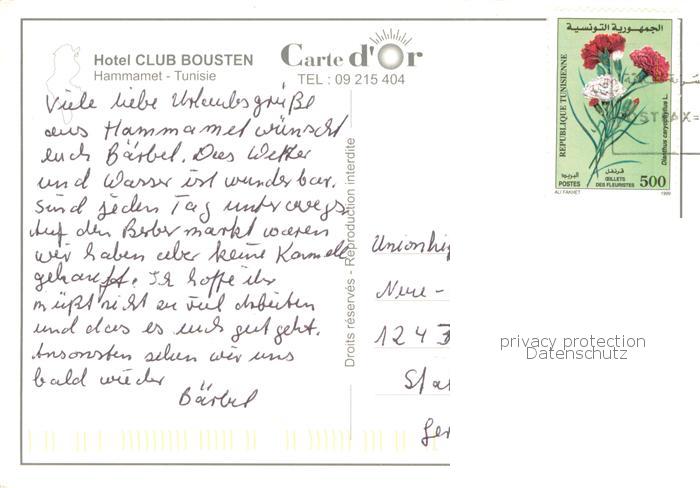 Hotel CLUB BOUSTEN
Hammamet - Tunisie
Carte d'Or
TEL : 09 215 404
Viele liebe Urlaubsgrüße
aus Hammamet wünscht
euch Bärbel. Das Wetter
und Wasser ist wunderbar.
Sind jeden Tag unterwegs.
Auf den Berbermarkt waren
wir haben aber keine Kamele
gekauft. Ich hoffe ihr
müßt nicht zu viel arbeiten
und das es euch gut geht.
Ansonsten sehen wir uns
bald wieder
Bärbel
Droits réservés - Reproduction interdite
Unionhi
Neue-
1243
Sta
Ger
privacy protection
Datenschutz
الجمهورية التونسية
REPUBLIQUE TUNISIENNE
Dianthus caryophyllus L.
قرنفل
البريد
ŒILLETS
DES FLEURISTES
POSTES
500
ALI FAKHET
1999